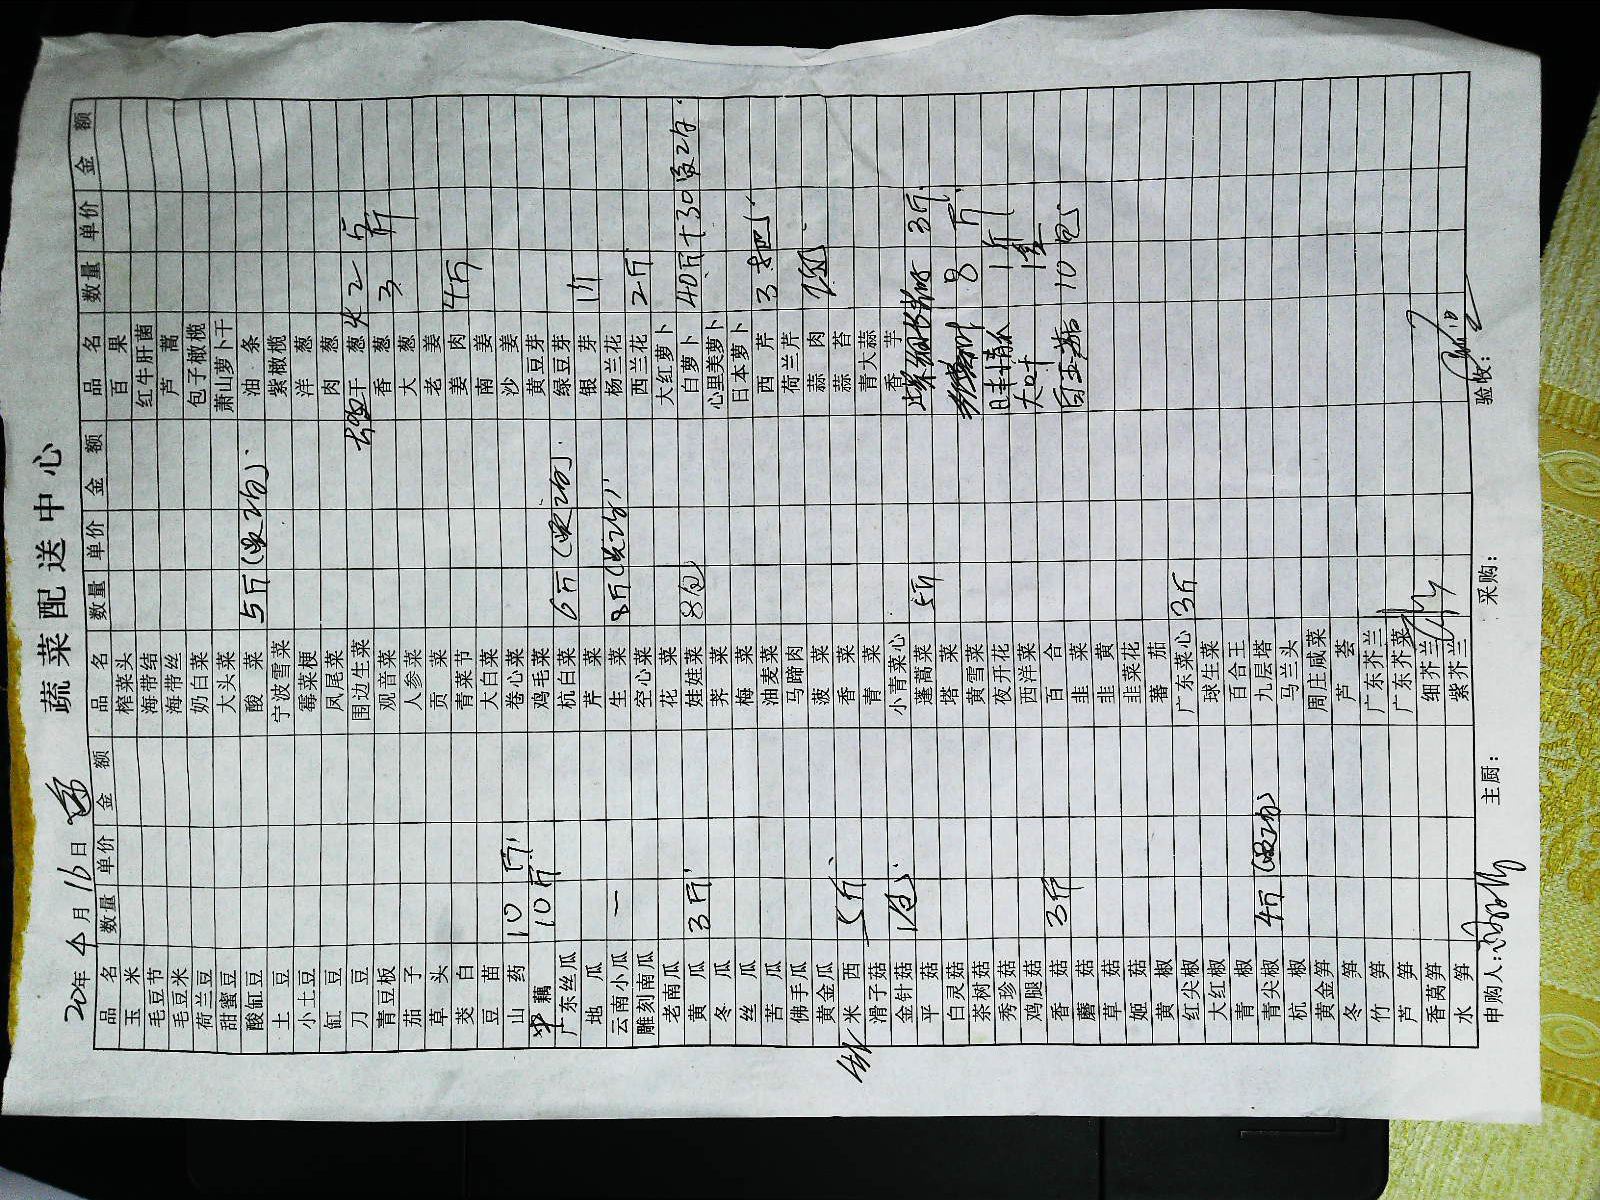 蔬菜配送中心
20年4月16日
品名 数量 单价 金额 品名 数量 单价 金额 品名 数量 单价 金额
玉米 榨菜头 百果
毛豆节 海带结 红牛肝菌
毛豆米 海带丝 芦蒿
荷兰豆 奶白菜 包子橄榄
甜蜜豆 大头菜 萧山萝卜干
酸缸豆 酸菜 5斤 油条
土豆 宁波雪菜 紫橄榄
小土豆 霉菜梗 洋葱
缸豆 凤尾菜 肉葱
刀豆 围边生菜 干葱 2斤
青豆板 观音菜 香葱 3斤
茄子 人参菜 大葱
草头 贡菜 老姜
茭白 青菜节 姜肉 4斤
豆苗 大白菜 南姜
山药 10斤 卷心菜 沙姜
藕 10斤 鸡毛菜 黄豆芽
广东丝瓜 杭白菜 6斤 绿豆芽
地瓜 芹菜 银芽 1斤
云南小瓜 一 生菜 8斤 杨兰花
雕刻南瓜 空心菜 西兰花 2斤
老南瓜 花菜 大红萝卜
黄瓜 3斤 娃娃菜 8包 白萝卜 40斤+30
冬瓜 荠菜 心里美萝卜
丝瓜 梅菜 日本萝卜
苦瓜 油麦菜 西芹 3把
佛手瓜 马蹄肉 荷兰芹
黄金瓜 菠菜 蒜肉
米西 5斤 香菜 蒜苔
滑子菇 青菜 青大蒜
金针菇 1包 小青菜心 香芋
平菇 蓬蒿菜 5斤 3斤
白灵菇 塔菜
茶树菇 黄雪菜 8斤
秀珍菇 夜开花 1斤
鸡腿菇 西洋菜 大叶 1
香菇 3斤 百合
蘑菇 韭菜 白玉菇 10包
草菇 韭黄
姬菇 韭菜花
黄椒 蕃茄
红尖椒 广东菜心 3斤
大红椒 球生菜
青椒 百合王
青尖椒 4斤 九层塔
杭椒 马兰头
黄金笋 周庄咸菜
冬笋 芦荟
竹笋 广东芥兰
芦笋 广东芥菜
香莴笋 细芥兰
水笋 紫芥兰
申购人: 主厨: 采购: 验收: